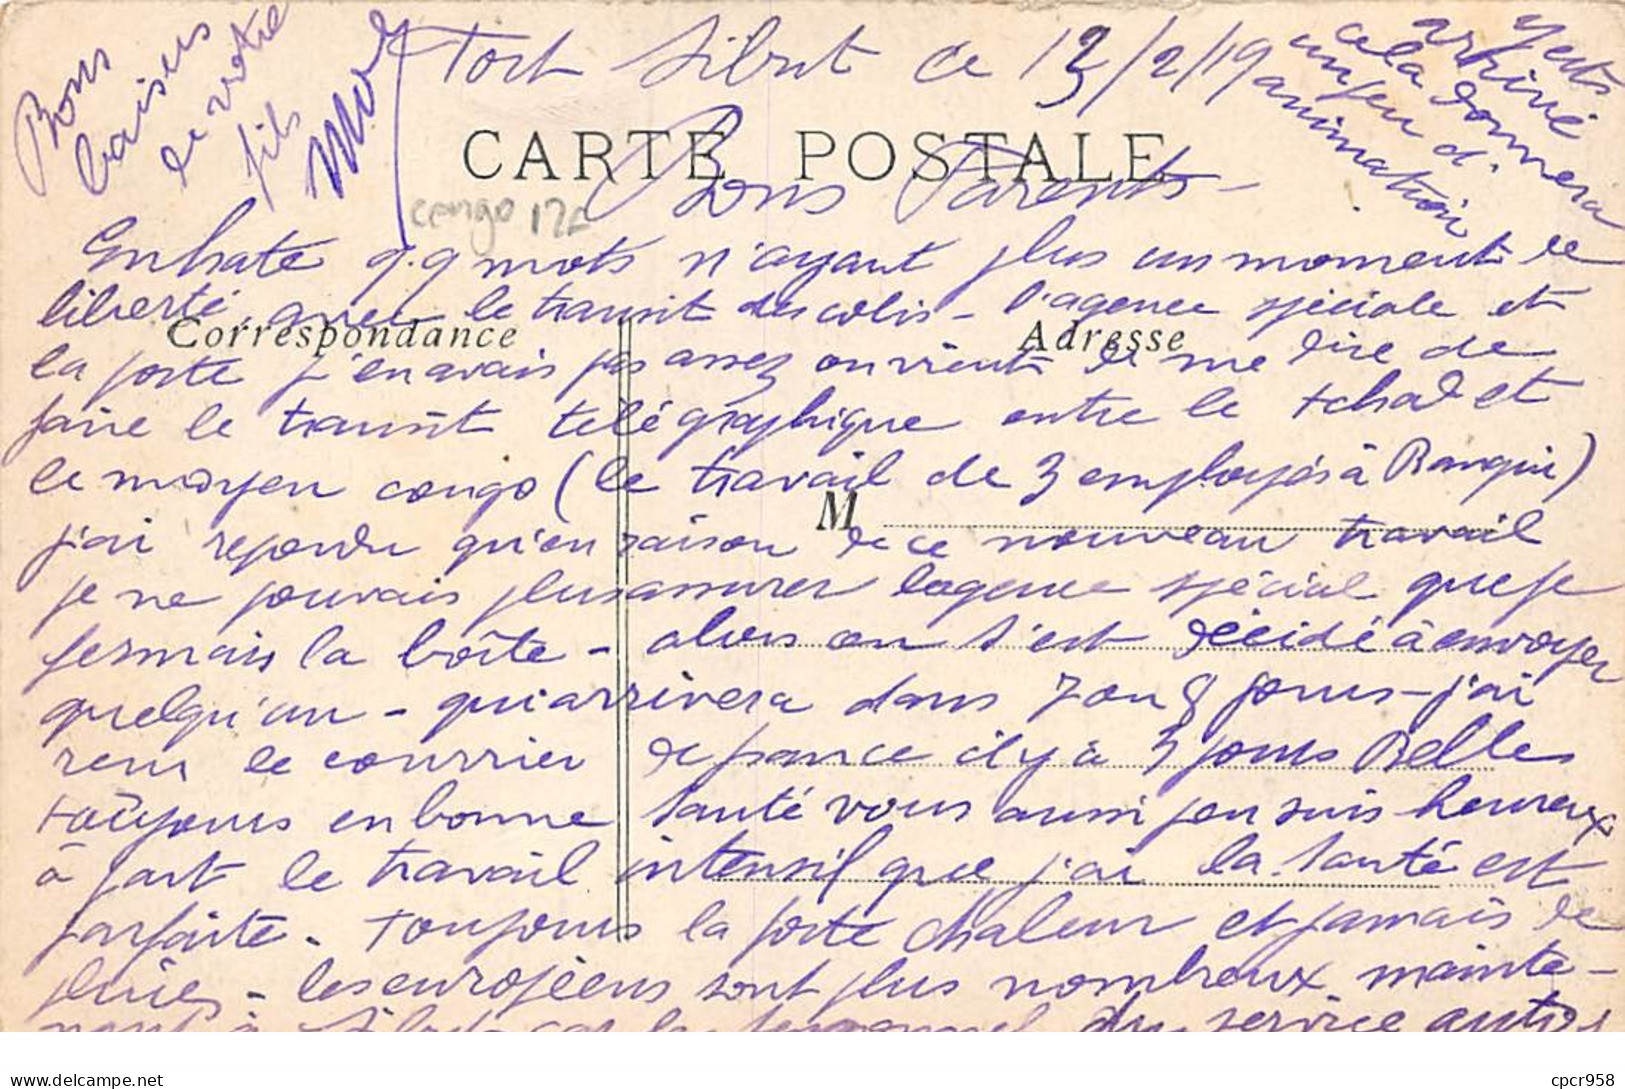 Fort Sibut ce 13/2/19
CARTE POSTALE
Bons Parents -
congo
Enhate q.q mots n'ayant plus un moment de
liberté, avec le transit des colis - l'agence spéciale et
Correspondance
Adresse
la poste j'en avais pas assez on vient de me dire de
faire le transit télégraphique entre le tchad et
le moyen congo (le travail de 3 employés à Bangui)
M
j'ai repondu qu'en raison de ce nouveau travail
je ne pouvais plus assurer l'agence spécial que je
fermais la boîte - alors on s'est décidé à envoyer
quelqu'un - qui arrivera dans 7 ou 8 jours - j'ai
reçu le courrier de france il y a 3 jours Belles
toujours en bonne santé vous aussi j'en suis heureux
à part le travail intensif que j'ai la santé est
parfaite - toujours la forte chaleur et jamais de
pluies - les européens sont plus nombreux mainte-
nant à Sibut car le personnel du service autos
y est
arrivé
cela donnera
un peu d'
animation
Bons
baisers
de votre
fils
cpcr958